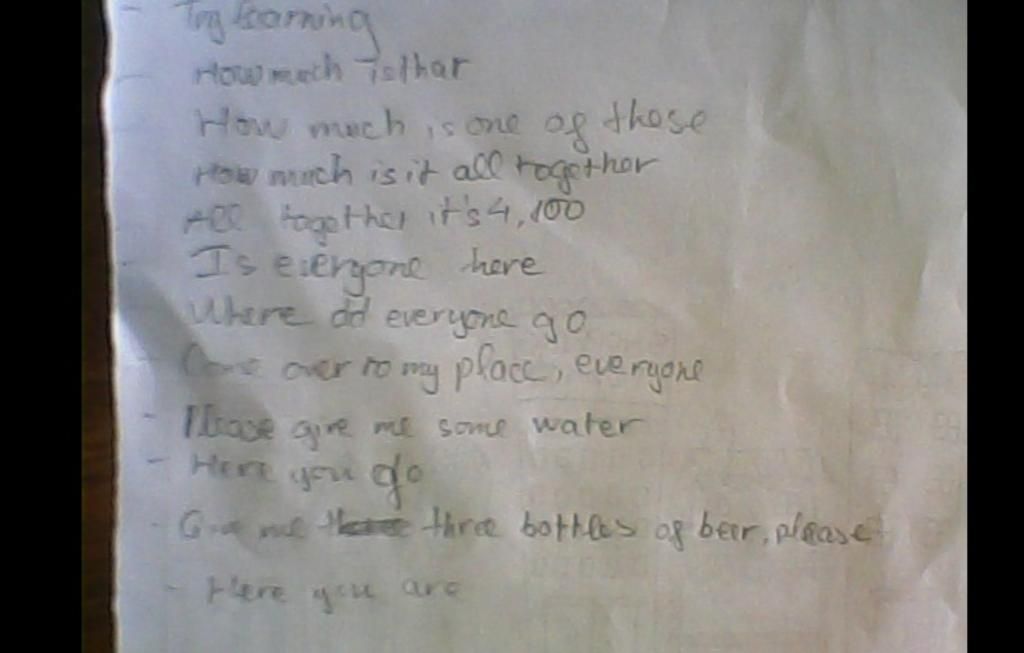 - Try learning
- How much is that
How much is one of these
How much is it all together
All together it's 4,100
- Is everyone here
Where did everyone go
- Come over to my place, everyone
- Please give me some water
- Here you go
- Give me three bottles of beer, please
- Here you are